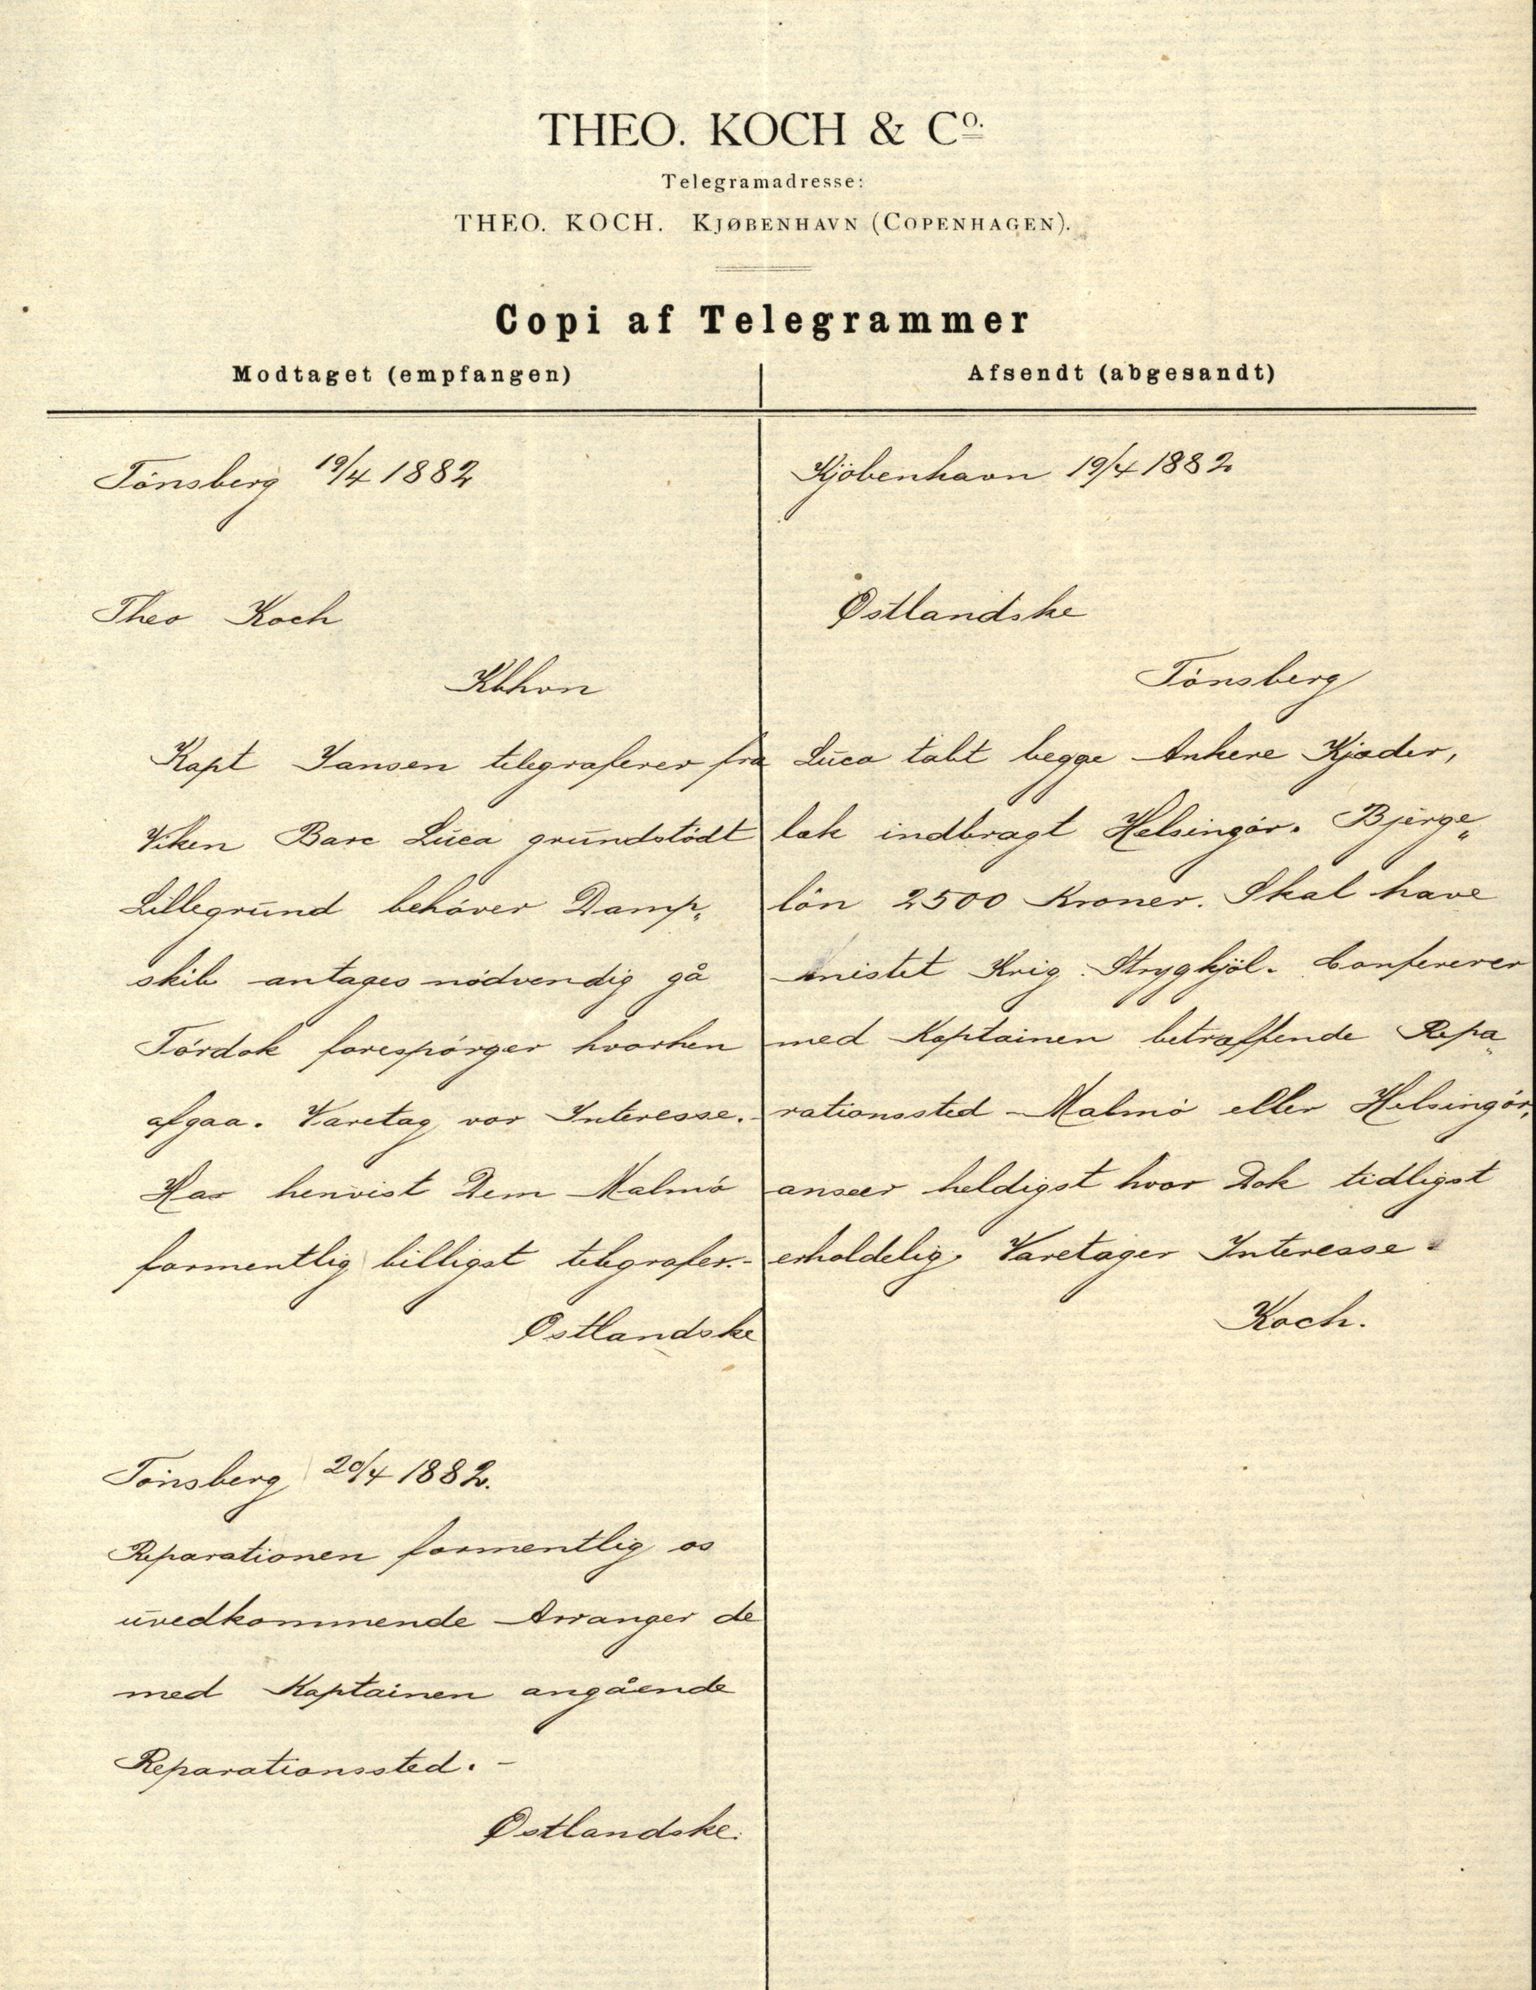 THEO. KOCH & Co.
Telegramadresse:
THEO. KOCH. KJØBENHAVN (COPENHAGEN).
Copi af Telegrammer
Modtaget (empfangen)
Tönsberg 19/4 1882
Theo Koch
Kbhvn
Kapt Jansen telegraferer fra
Viken Barc Luca grundstödt
Lillegrund behöver Damp„
skib antages nödvendig gå
Tördok forespörger hvorhen
afgaa. Varetag vor Interesse.
Har henvist Dem Malmö
formentlig billigst telegrafer.-
Østlandske
Tönsberg 20/4 1882.
Reparationen formentlig os
uvedkommende Arranger de
med Kaptainen angående
Reparationssted. -
Østlandske.
Afsendt (abgesandt)
Kjöbenhavn 19/4 1882
Østlandske
Tönsberg
Luca tabt begge Ankere Kjæder,
læk indbragt Helsingör. Bjerge„
lön 2500 Kroner. Skal have
mistet Krig. Strygkjöl. Confererer
med Kaptainen betræffende Repa„
rationssted Malmö eller Helsingör,
anseer heldigst hvor Dok tidligst
erholdelig. Varetager Interesse.
Koch.